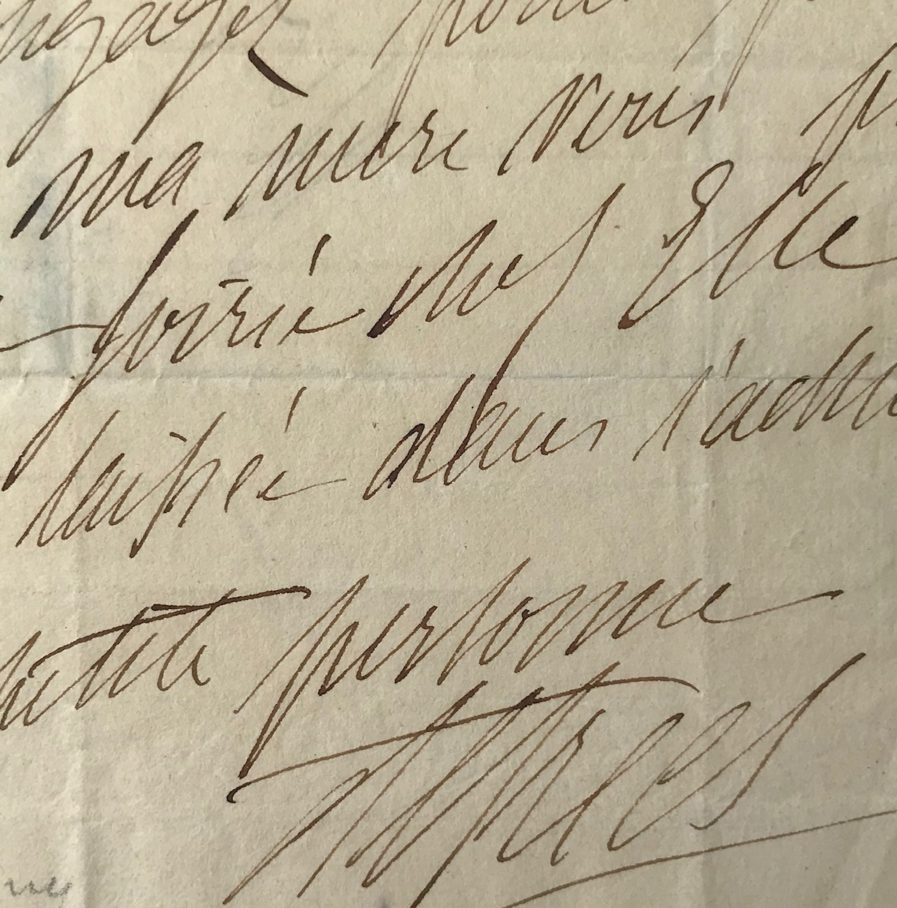 engagés pour
ma mere vous
soirée chez Elle
laissée dans l'adm
petite personne